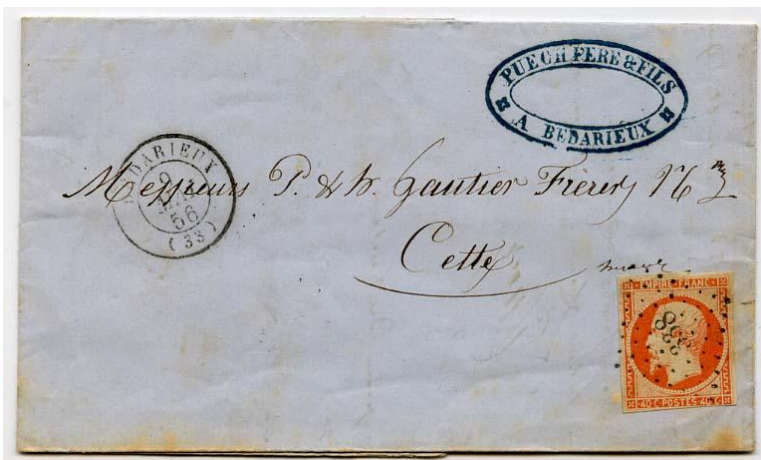 PUECH PERE & FILS
A BEDARIEUX
BEDARIEUX
9
56
(33)
Messieurs P. & h. Gautier Frères
Cette
EMPIRE-FRANC
338
40-C-POSTES-40-C